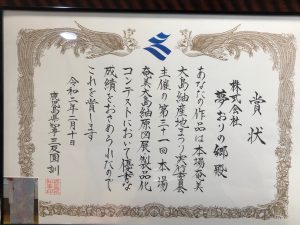 賞状
株式会社
夢おりの郷 殿
あなたの作品は本場奄美
大島紬産地まつり実行委員会
主催の第三十一回本場
奄美大島紬原図展製品化
コンテストにおいて優秀な
成績をおさめられたので
これを賞します
令和二年二月十日
鹿児島県知事 三反園 訓